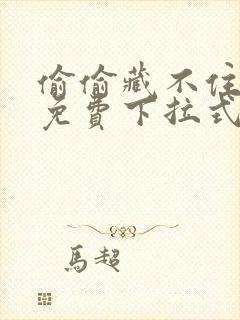 偷偷藏不住
免費下拉式
馬超